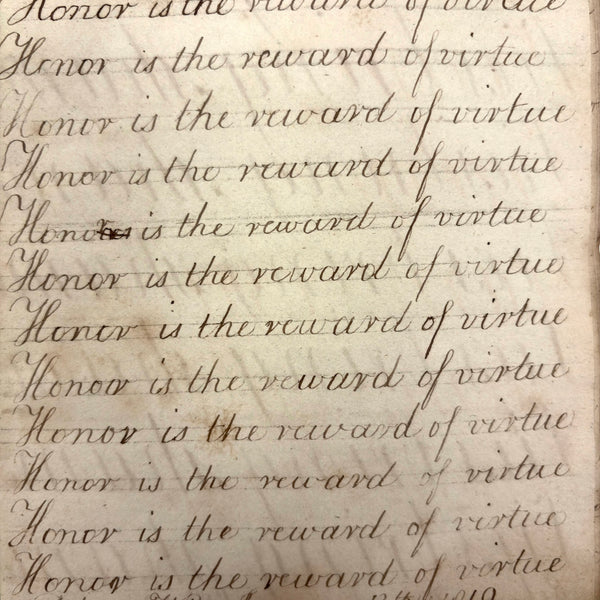 Honor is the reward of virtue
Honor is the reward of virtue
Honor is the reward of virtue
Honor is the reward of virtue
Honor is the reward of virtue
Honor is the reward of virtue
Honor is the reward of virtue
Honoor is the reward of virtue
Honor is the reward of virtue
Honor is the reward of virtue
Honor is the reward of virtue
Honor is the reward of virtue